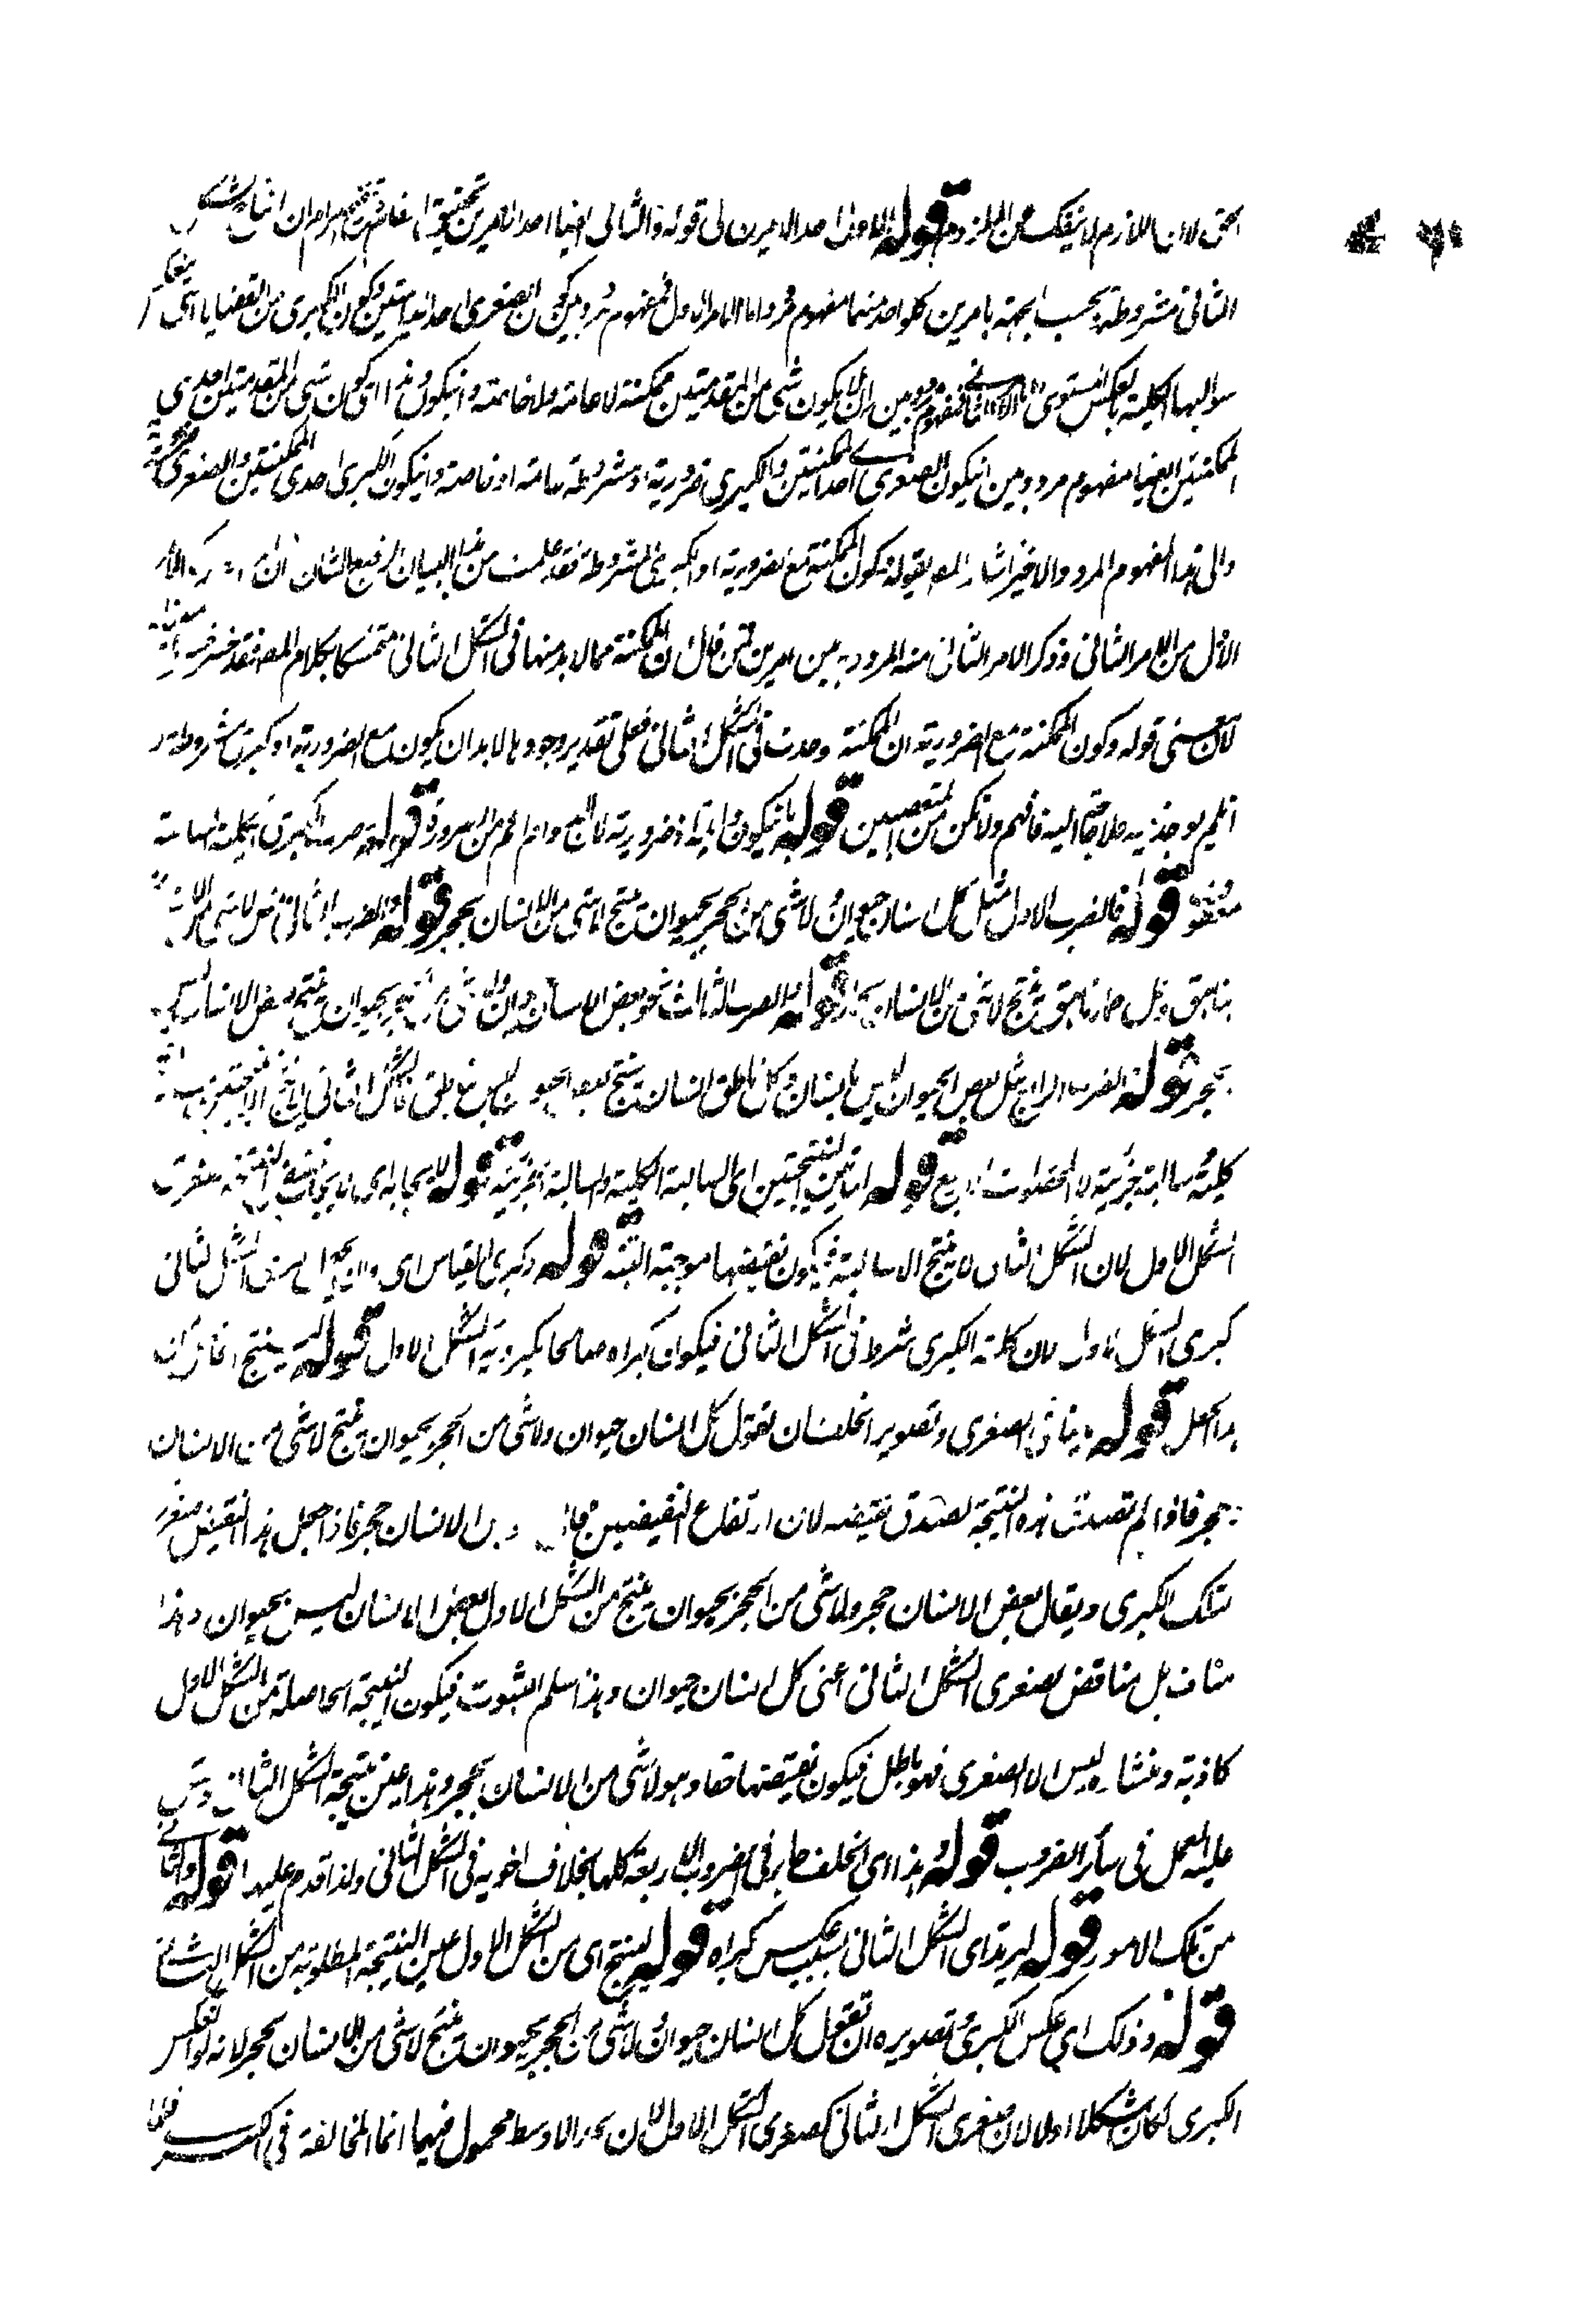 الحق لان اللازم لا ينفك عن الملزوم قوله الاول احد الامرين الى قوله والثاني ايضا احد الامرين تحقيق المقام ان انتاج الشكل
الثاني مشروط بحسب الجهة بامرين كل واحد منهما مفهوم مردد اما الامر الاول فمفهوم مردد بين كون الصغرى احد الدائمتين وكون الكبرى من القضايا التي ينعكس
سوالبها الكلية بالعكس المستوي واما الامر الثاني فمفهوم مردد بين ان لا يكون شيء من المقدمتين ممكنة لا عامة ولا خاصة وان يكون اذا كان شيء من المقدمتين احدى
الممكنتين ايضا مفهوم مردد بين ان يكون الصغرى احدى الممكنتين والكبرى ضرورية او مشروطة عامة او خاصة وان يكون الكبرى احدى الممكنتين والصغرى ضرورية
والى هذا المفهوم المردد الاخير اشار المص بقوله وكون الممكنة مع الضرورية او الكبرى المشروطة فقد علمت من هذا البيان الرفيع الشان ان
الاول من الامر الثاني وذكر الامر الثاني منه المردد بين امرين فمن قال ان الممكنة مما لا بد منها في الشكل الثاني متمسكا بكلام المص فقد خسر
لان معنى قوله وكون الممكنة مع الضرورية ان الممكنة وجدت في الشكل الثاني فعلى تقدير وجودها لا بد ان يكون مع الضرورية او كبرى مشروطة
ان لم يوجد فيه فلا حاجة اليه فافهم ولا تكن من المتعصبين قوله بان يكون دائمة او ضرورية لان الدوام اعم من الضرورة قوله ضرب الكبرى الكلية السالبة
قوله فالضرب الاول مثل كل انسان حيوان ولا شيء من الحجر بحيوان ينتج لا شيء من الانسان بحجر قوله والضرب الثاني نحو لا شيء من الانسان
بناهق وكل حمار ناهق ينتج لا شيء من الانسان بحمار قوله والضرب الثالث نحو بعض الانسان حيوان ولا شيء من الحجر بحيوان ينتج بعض الانسان ليس
بحجر قوله والضرب الرابع مثل بعض الحيوان ليس بانسان وكل ناطق انسان ينتج بعض الحيوان ليس بناطق فالشكل الثاني
كلية وسالبة جزئية لا المحصورات الاربع قوله هاتين النتيجتين اي السالبة الكلية والسالبة الجزئية قوله لايجابه اي لايجاب نقيض النتيجة صغرى
الشكل الاول لان الشكل الثاني لا ينتج الا سالبة فيكون نقيضها موجبة البتة قوله وكبرى القياس اي الشكل الثاني
كبرى الشكل الاول لان كلية الكبرى شرط في الشكل الثاني فيكون كبراه صالحا لكبروية الشكل الاول قوله ينتج
هذا الجعل قوله ينافي الصغرى وتصوير الخلف ان تقول كل انسان حيوان ولا شيء من الحجر بحيوان ينتج لا شيء من الانسان
بحجر فاذا لم تصدق هذه النتيجة لصدق نقيضه لان ارتفاع النقيضين محال وهو بعض الانسان حجر فاذا جعل هذا النقيض صغرى
لتلك الكبرى ويقال بعض الانسان حجر ولا شيء من الحجر بحيوان ينتج من الشكل الاول بعض الانسان ليس بحيوان وهذا
مناف بل مناقض لصغرى الشكل الثاني اعني كل انسان حيوان وهذا مسلم الثبوت فيكون النتيجة الحاصلة من الشكل الاول
كاذبة ومنشاه ليس الا الصغرى فهو باطل فيكون نقيضها حقا وهو لا شيء من الانسان بحجر وهذا عين نتيجة الشكل الثاني وقس
عليه العمل في سائر الضروب قوله وهذا اي الخلف جار في الضروب الاربعة كلها بخلاف اخويه في الشكل الثاني ولذا قدم عليهما قوله والثاني
من تلك الامور قوله ليرتد اي الشكل الثاني بسبب عكس كبراه قوله لينتج اي من الشكل الاول عين النتيجة المطلوبة من الشكل الثاني
قوله وذلك اي عكس الكبرى وتصويره ان تقول كل انسان حيوان ولا شيء من الحجر بحيوان ينتج لا شيء من الانسان بحجر لانه لو انعكس
الكبرى لكان شكلا اولا لان صغرى الشكل الثاني كصغرى الشكل الاول لان الاوسط محمول فيهما انما المخالفة في الكبرى فلما